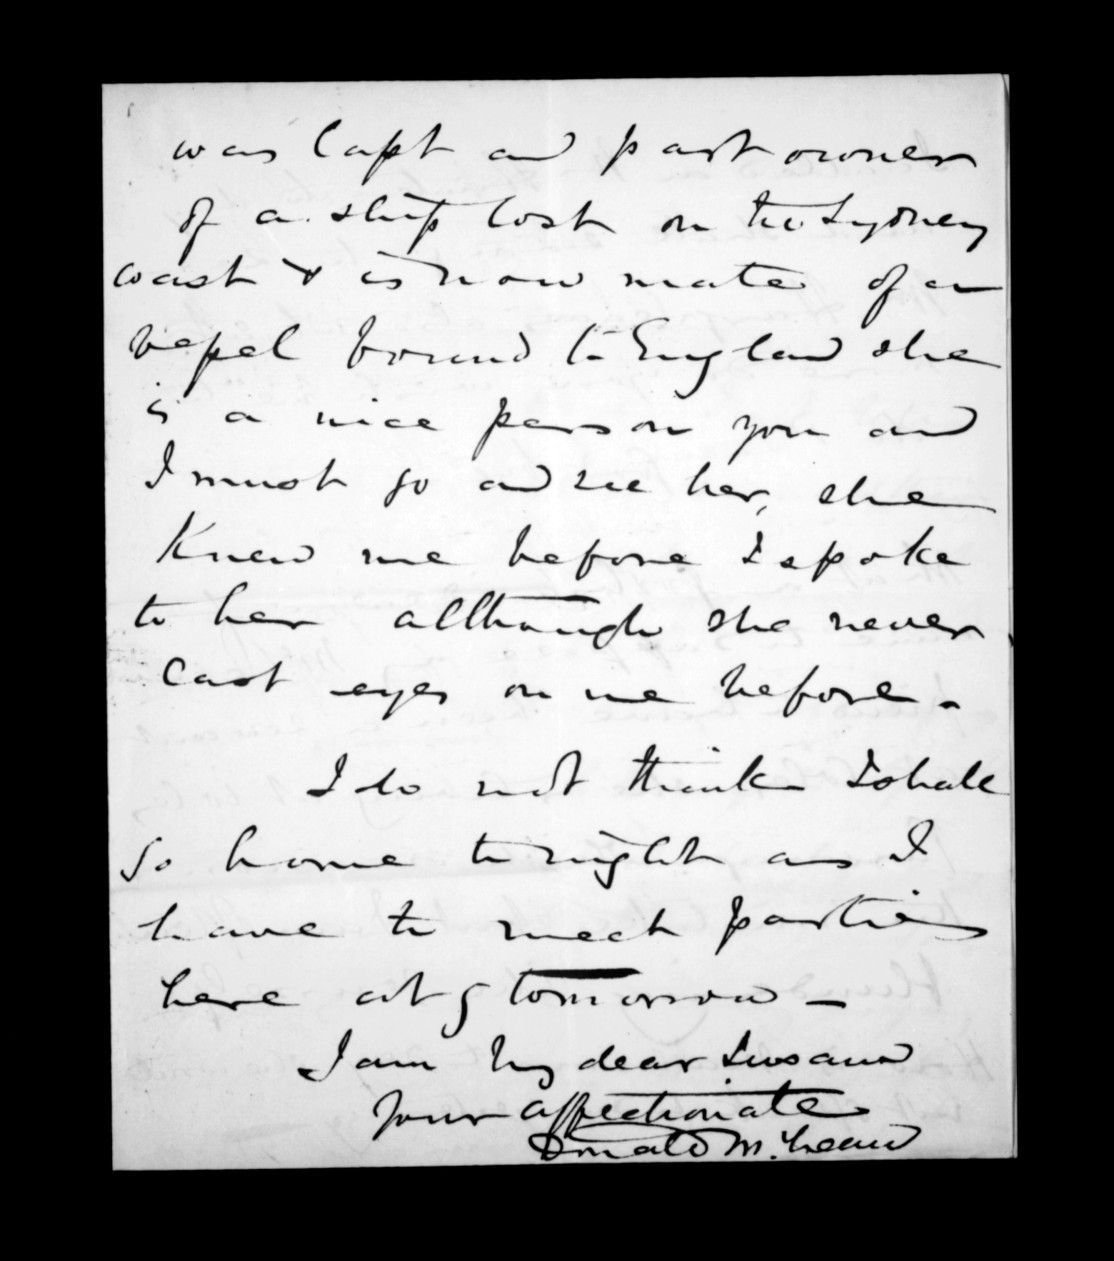 was Capt and part owner
of a ship lost on the Sydney
coast & is now mate of a
vessel bound to England she
is a nice person you and
I must go and see her, she
knew me before I spoke
to her although she never
cast eyes on me before.
I do not think I shall
go home tonight as I
have to meet parties
here at 9 tomorrow —
I am My dear Susan
Your affectionate
Donald McLean